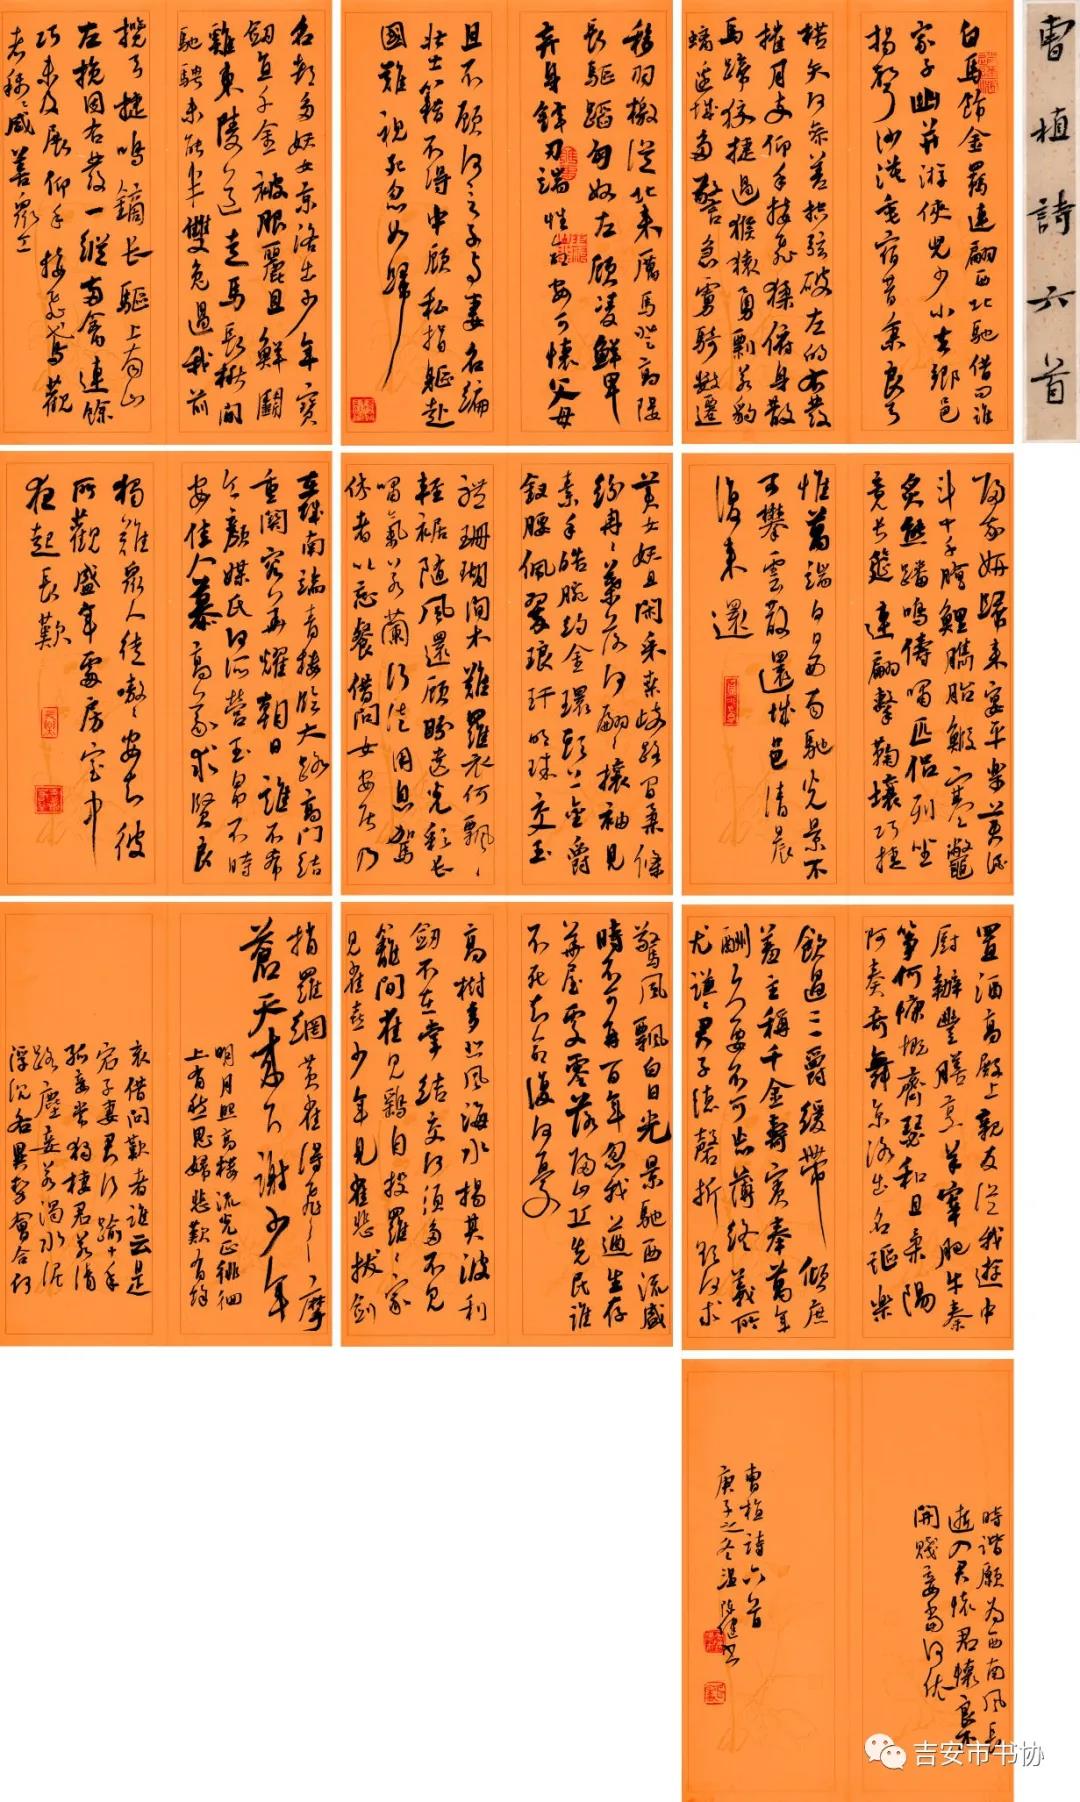 曹植詩六首
白馬飾金羈連翩西北馳借問誰
家子幽并游俠兒少小去鄉邑
揚聲沙漠垂宿昔秉良弓
楛矢何參差控弦破左的右發
摧月支仰手接飛猱俯身散
馬蹄狡捷過猴猿勇剽若豹
螭邊城多警急虜騎數遷
移羽檄從北來厲馬登高隄
長驅蹈匈奴左顧凌鮮卑
棄身鋒刃端性命安可懷父母
且不顧何言子與妻名編
壯士籍不得中顧私捐軀赴
國難視死忽如歸
名都多妖女京洛出少年寶
劍直千金被服麗且鮮鬬
雞東陵道走馬長楸間
馳騁未能半雙兔過我前
攬弓捷鳴鏑長驅上南山
左挽因右發一縱兩禽連餘
巧未及展仰手接飛鳶觀
者稱〻咸善衆工
歸我妍歸來宴平樂美酒
斗十千膾鯉臇胎鰕寒鼈
炙熊蹯鳴儔嘯匹侣列坐
竟長筵連翩擊鞠壤巧捷
惟萬端白日西南馳光景不
可攀雲散還城邑清晨
復來還
美女妖且閑采桑歧路間柔條
紛冉〻葉落何翩〻攘袖見
素手皓腕約金環頭上金爵
釵腰佩翠琅玕明珠交玉
體珊瑚間木難羅衣何飄〻
輕裾隨風還顧盼遺光彩長
嘯氣若蘭行徒用息駕
休者以忘餐借問女安居乃
在城南端青樓臨大路高門結
重關容華耀朝日誰不希
令顏媒氏何所營玉帛不時
安佳人慕高義求賢良
獨難衆人徒嗷〻安知彼
所觀盛年處房室中
夜起長歎
置酒高殿上親友從我遊中
廚辦豐膳烹羊宰肥牛秦
箏何慷慨齊瑟和且柔陽
阿奏奇舞京洛出名謳樂
飲過三爵緩帶傾庶
羞主稱千金壽賓奉萬年
酬久要不可忘薄終義所
尤謙〻君子德磬折欲何求
驚風飄白日光景馳西流盛
時不可再百年忽我遒生存
華屋處零落歸山丘先民誰
不死知命復何憂
高樹多悲風海水揚其波利
劍不在掌結交何須多不見
籬間雀見鷂自投羅〻家
見雀喜少年見雀悲拔劍
捎羅網黃雀得飛〻〻摩
蒼天來下謝少年
明月照高樓流光正徘徊
上有愁思婦悲歎有餘
哀借問歎者誰云是
宕子妻君行踰十年
孤妾常獨棲君若清
路塵妾若濁水泥
浮沉各異勢會合何
時諧願為西南風長
逝入君懷君懷良不
開賤妾當何依
曹植詩六首
庚子之冬温陳健書
吉安市书协